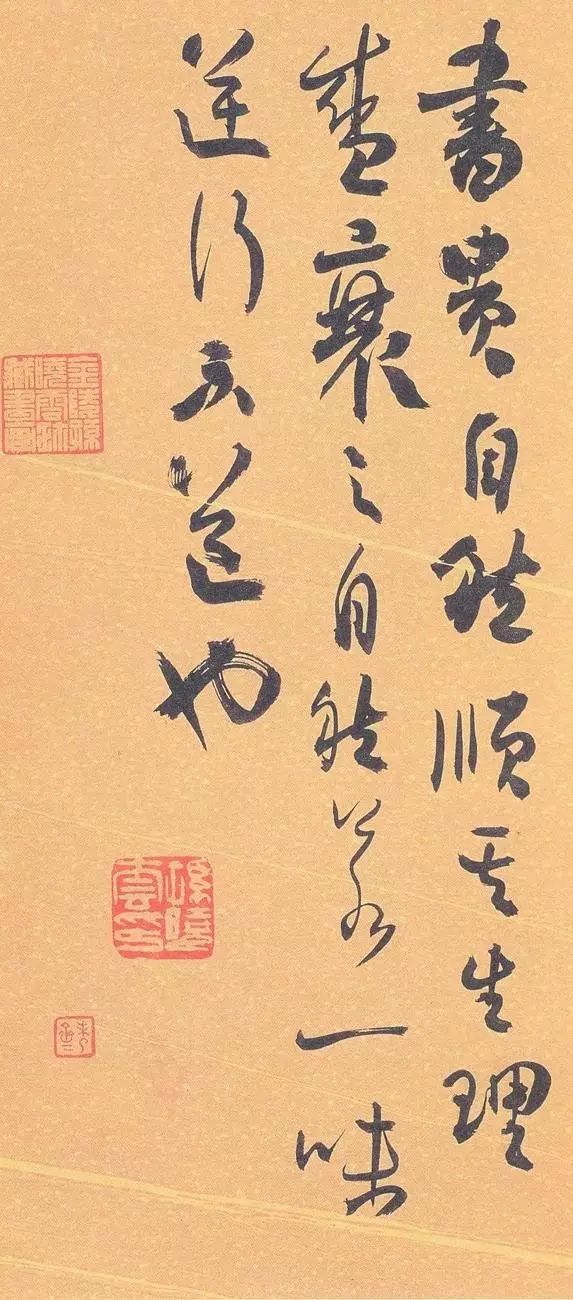 書貴自然順其生理
盛衰之自然若一味
逆行不道也